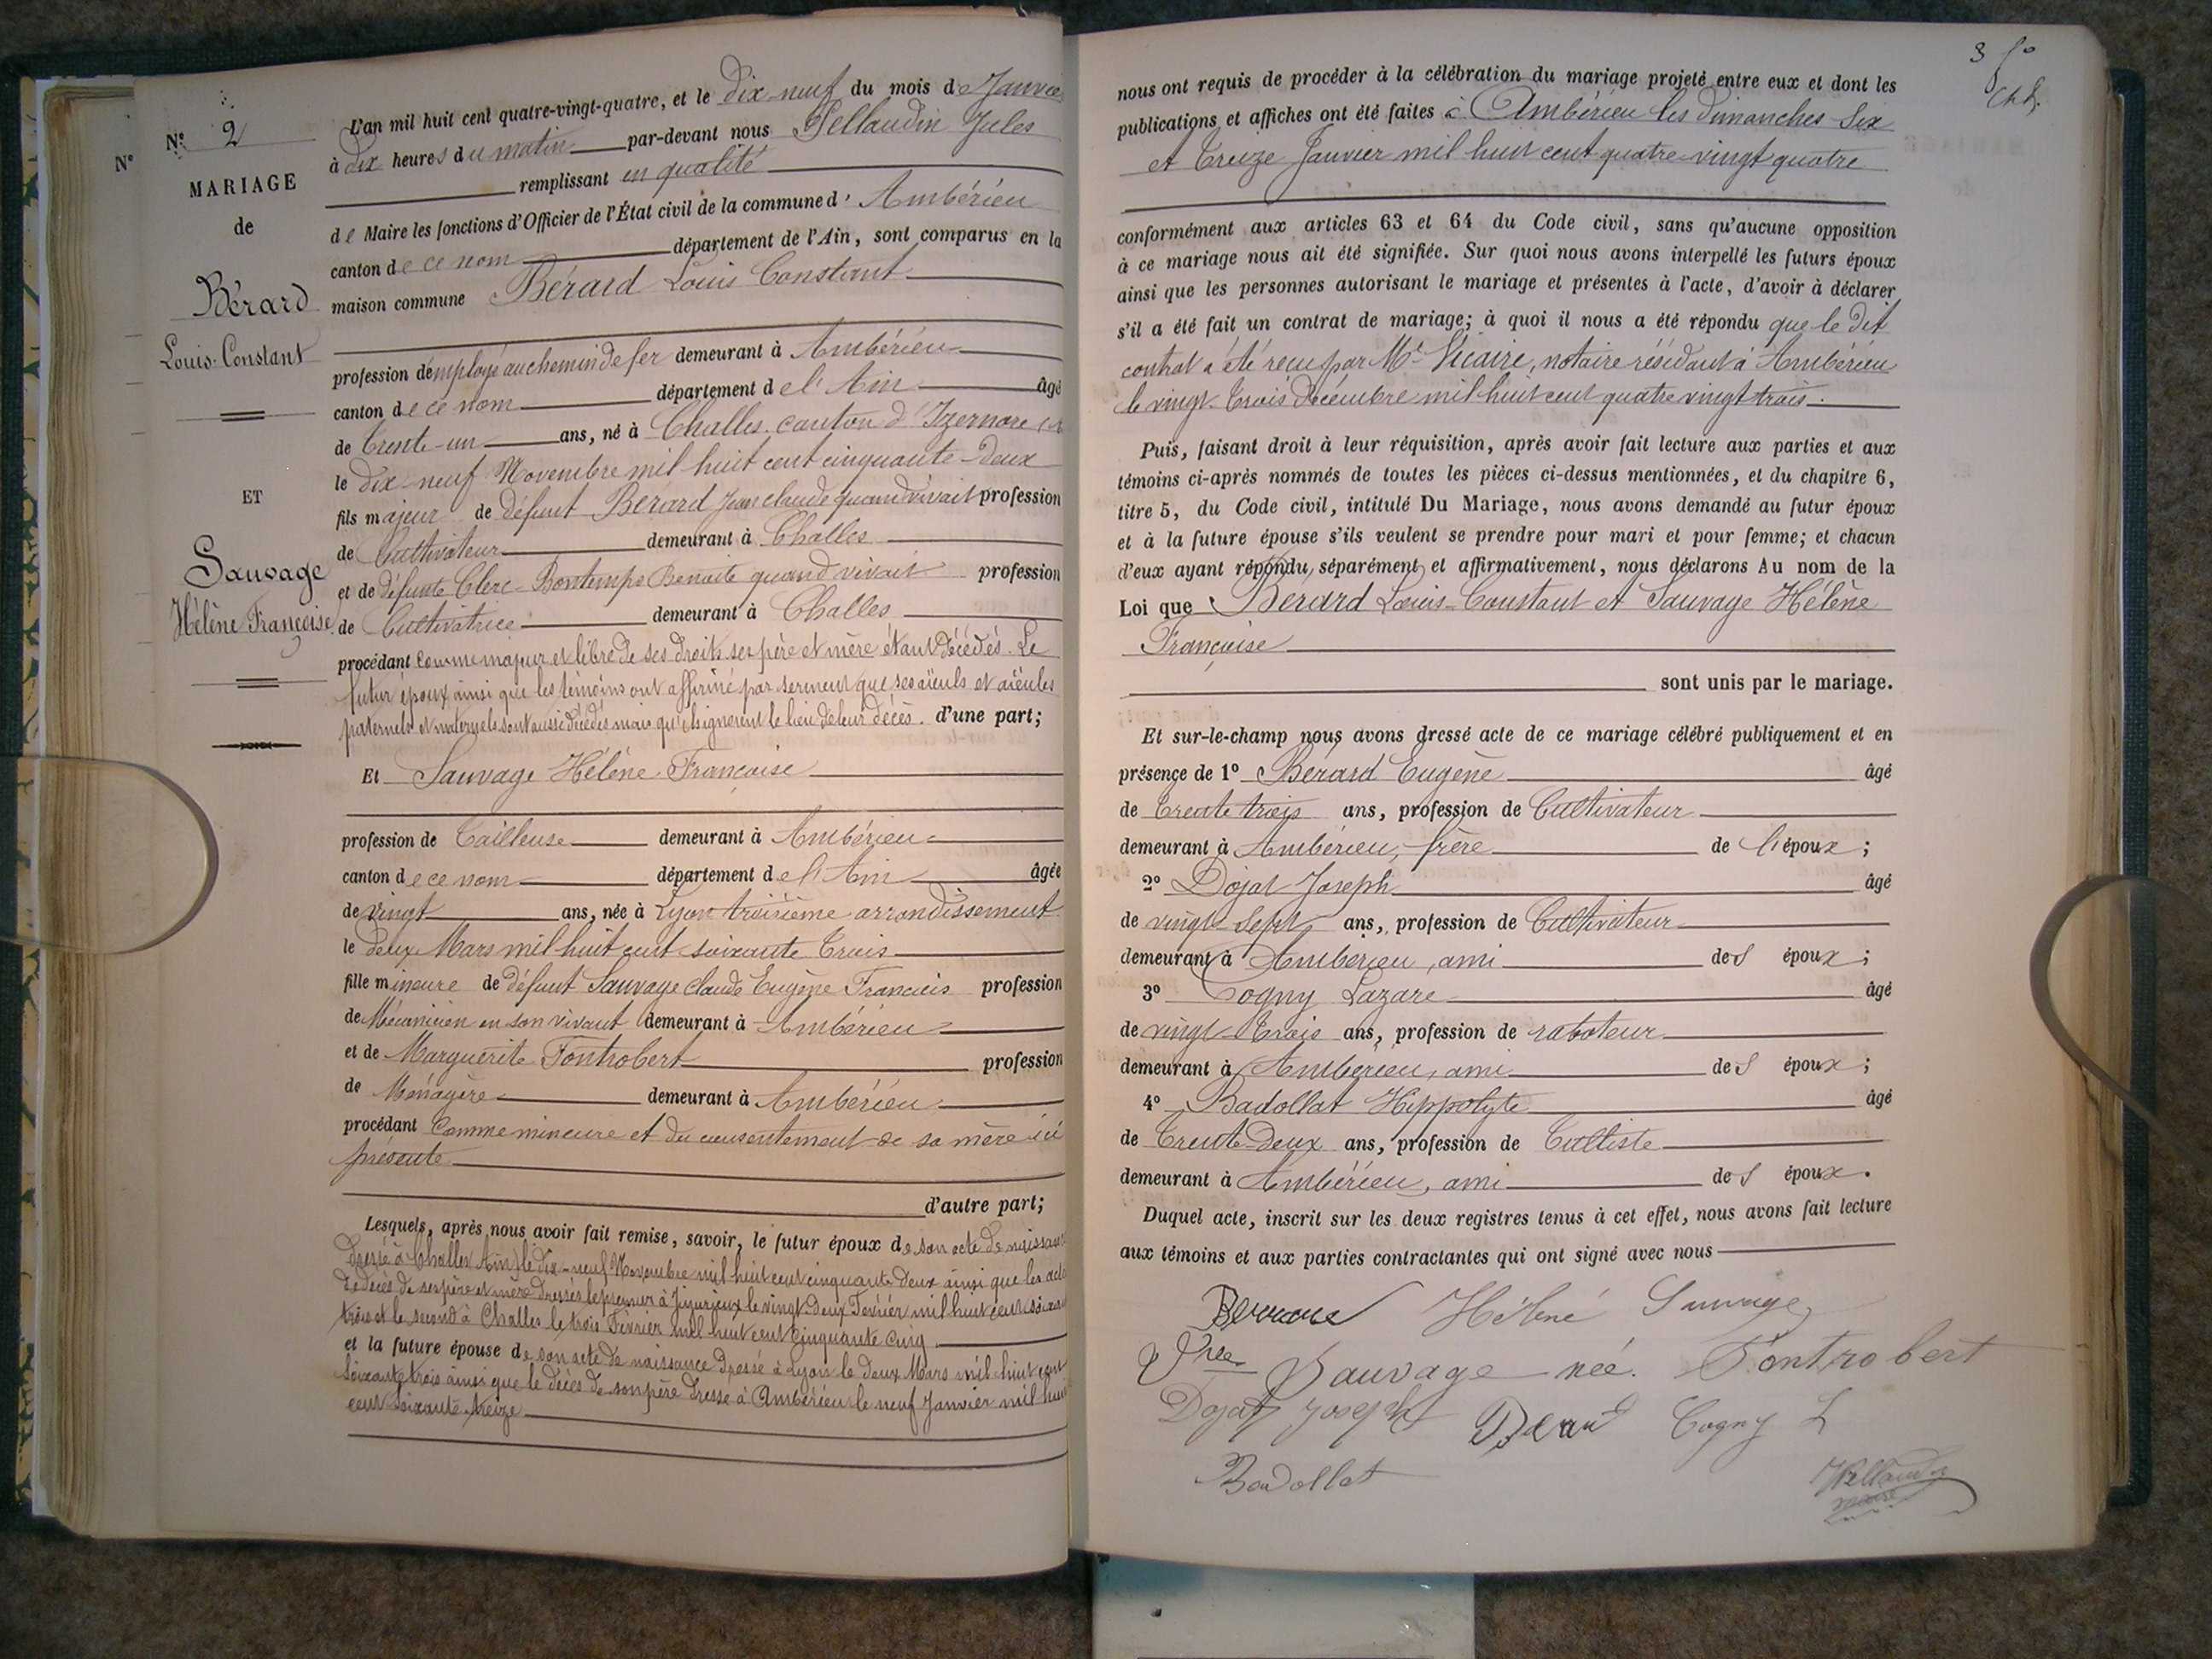 N° 2
N°
MARIAGE
de
Bérard
Louis-Constant
ET
Sauvage
Hélène Françoise
L'an mil huit cent quatre-vingt-quatre, et le dix-neuf du mois de Janvier
à dix heures du matin par-devant nous Pellaudin Jules
remplissant en qualité
de Maire les fonctions d'Officier de l'État civil de la commune d'Ambérieu
canton de ce nom département de l'Ain, sont comparus en la
maison commune Bérard Louis Constant
profession d'employé au chemin de fer demeurant à Ambérieu
canton de ce nom département de l'Ain âgé
de trente-un ans, né à Challes canton d'Izernore
le dix-neuf Novembre mil huit cent cinquante-deux
fils majeur de défunt Bérard Jean claude quand vivait profession
de Cultivateur demeurant à Challes
et de défunte Clerc-Bontemps Benoite quand vivait profession
de Cultivatrice demeurant à Challes
procédant comme majeur et libre de ses droits ses père et mère étant décédés. Le
futur époux ainsi que les témoins ont affirmé par serment que ses aïeuls et aïeules
paternels et maternels sont aussi décédés mais qu'ils ignorent le lieu de leur décès. d'une part;
Et Sauvage Hélène Françoise
profession de Tailleuse demeurant à Ambérieu
canton de ce nom département de l'Ain âgée
de vingt ans, née à Lyon troisième arrondissement
le deux Mars mil huit cent soixante trois
fille mineure de défunt Sauvage Claude Eugène Francois profession
de Mécanicien en son vivant demeurant à Ambérieu
et de Marguerite Fontrobert profession
de Ménagère demeurant à Ambérieu
procédant Comme mineure et du consentement de sa mère ici
présente
d'autre part;
Lesquels, après nous avoir fait remise, savoir, le futur époux de son acte de naissance
dressé à Challes (Ain) le dix-neuf Novembre mil huit cent cinquante deux ainsi que les actes
de décès de ses père et mère dressés le premier à Jujurieux le vingt-deux Février mil huit cent soixante
trois et le second à Challes le trois Février mil huit cent cinquante cinq
et la future épouse de son acte de naissance dressé à Lyon le deux Mars mil huit cent
soixante trois ainsi que le décès de son père dressé à Ambérieu le neuf Janvier mil huit
cent soixante treize
3 fo
nous ont requis de procéder à la célébration du mariage projeté entre eux et dont les
publications et affiches ont été faites à Ambérieu les dimanches six
et treize Janvier mil huit cent quatre-vingt quatre
conformément aux articles 63 et 64 du Code civil, sans qu'aucune opposition
à ce mariage nous ait été signifiée. Sur quoi nous avons interpellé les futurs époux
ainsi que les personnes autorisant le mariage et présentes à l'acte, d'avoir à déclarer
s'il a été fait un contrat de mariage; à quoi il nous a été répondu que le dit
contrat a été reçu par Me Vicaire, notaire résidant à Ambérieu
le vingt-trois décembre mil huit cent quatre vingt trois.
Puis, faisant droit à leur réquisition, après avoir fait lecture aux parties et aux
témoins ci-après nommés de toutes les pièces ci-dessus mentionnées, et du chapitre 6,
titre 5, du Code civil, intitulé Du Mariage, nous avons demandé au futur époux
et à la future épouse s'ils veulent se prendre pour mari et pour femme; et chacun
d'eux ayant répondu séparément et affirmativement, nous déclarons Au nom de la
Loi que Bérard Louis-Constant et Sauvage Hélène
Françoise
sont unis par le mariage.
Et sur-le-champ nous avons dressé acte de ce mariage célébré publiquement et en
présence de 1° Bérard Eugène âgé
de trente trois ans, profession de Cultivateur
demeurant à Ambérieu, frère de l'époux;
2° Dojat Joseph âgé
de vingt-sept ans, profession de Cultivateur
demeurant à Ambérieu, ami des époux;
3° Cogny Lazare âgé
de vingt-trois ans, profession de raboteur
demeurant à Ambérieu, ami des époux;
4° Badollat Hippolyte âgé
de trente deux ans, profession de Tulliste
demeurant à Ambérieu, ami des époux.
Duquel acte, inscrit sur les deux registres tenus à cet effet, nous avons fait lecture
aux témoins et aux parties contractantes qui ont signé avec nous
Hélène Sauvage
Vve Sauvage née. Fontrobert
Dojat Joseph Cogny L
Badollat